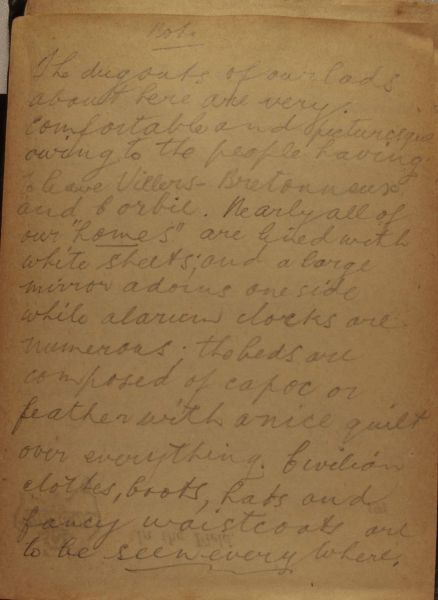 Bot.
The dugouts of our lads
about here are very
comfortable and picturesque
owing to the people having
to leave Villers-Bretonneux
and Corbie. Nearly all of
our "homes" are lined with
white sheets; and a large
mirror adorns one side
while alarum clocks are
numerous; the beds are
composed of capoc or
feather with a nice quilt
over everything. Civilian
clothes, boots, hats and
fancy waistcoats are
to be seen every where.
In the Field